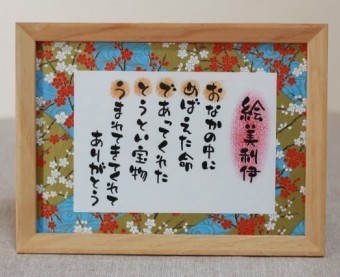 絵美利伊
おなかの中に
めばえた命
であってくれた
とうとい宝物
うまれてきてくれて
ありがとう